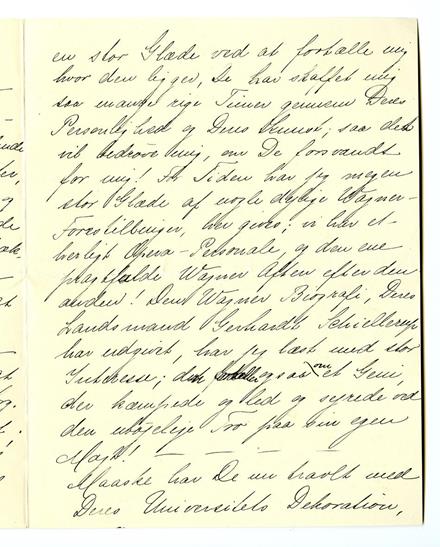 en stor Glæde ved at fortælle mig
hvor den ligger, De har skaffet mig
saa mange rige Timer gennem Deres
Personlighed og Deres Kunst; saa det
vil bedrøve mig, om De forsvandt
for mig! For Tiden har jeg megen
stor Glæde af nogle dejlige Wagner-
Forestillinger, her gives; vi har et
herligt Opera-Personale og den ene
pragtfulde Wagner Aften efter den
anden! Den Wagner Biografi, Deres
Landsmand Gerhardt Schjellerup
har udgivet, har jeg læst med stor
Interesse; den fortæller ogsaa om et Geni,
der kæmpede og led og sejrede ved
den ubøjelige Tro paa sin egen
Magt! — — — —
Maaske har De nu travlt med
Deres Universitets Dekoration,